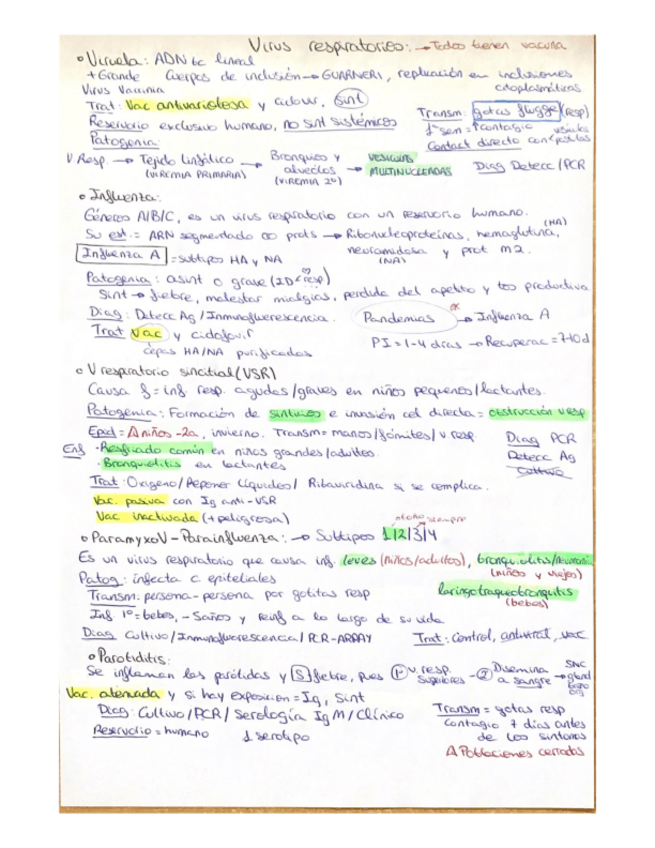 Virus respiratorios: → Todos tienen vacuna
• Viruela: ADN bc lineal
+Grande Cuerpos de inclusión → GUARNERI, replicación en inclusiones citoplasmáticas
Virus Vaccinia
Trat: Vac antivariolosa y cidovir, sint
Reservorio exclusivo humano, no sint sistémicos
Transm: gotas flugge (resp)
1ª sem = ↑contagio
Contact directo con vesículas pústulas
Patogenia:
V Resp. → Tejido linfático (VIREMIA PRIMARIA) → Bronquios y alveolos (VIREMIA 2ª) → VESÍCULAS MULTINUCLEADAS
Diag Detecc/PCR
• Influenza:
Géneros A/B/C, es un virus respiratorio con un reservorio humano.
Su est. = ARN segmentado ∞ prots → Ribonucleoproteínas, hemaglutina, (HA)
neuromidasa y prot M2.
(NA)
Influenza A = subtipos HA y NA
Patogenia: asint o grave (2D resp)
Sint → fiebre, malestar mialgias, perdida del apetito y tos productiva
Diag: Detecc Ag/Inmunofluerescencia.
Pandemias → Influenza A
Trat Vac y cidofovir
cepas HA/NA purificadas
PI = 1-4 días → Recuperac = 7-10d
• V respiratorio sincitial (VSR)
Causa f = inf resp. agudas/graves en niños pequeños/lactantes.
Patogenia: Formación de sinticios e invasión cel directa = obstrucción v resp
Epid = A niños -2a, invierno. Transm = manos/fómites/v resp
Enf -Resfriado común en niños grandes/adultos.
-Bronquiolitis en lactantes
Diag PCR
Detecc Ag
Cultivo
Trat: Oxígeno/Reponer líquidos/Ribaviridina si se complica.
Vac. pasiva con Ig anti-VSR
Vac inactivada (+peligrosa)
otoño siempre
• ParamyxoV-Parainfluenza: → Subtipos 1/2/3/4
Es un virus respiratorio que causa inf. leves (niños/adultos), bronquiolitis/neumoni
(niños y viejos)
Patog: infecta c epiteliales
laringotraqueobronquitis
(bebés)
Transm: persona-persona por gotitas resp
Inf 1º = bebes, -5años y Reinf a lo largo de su vida
Diag Cultivo/Inmunofluorescencia/PCR-ARRAY
Trat: control, antiviral, vac
• Parotiditis:
Se inflaman las parótidas y S fiebre, pues 1º v. resp. superiores → 2 Disemina a sangre → SNC gland
Vac. atenuada y si hay exposicion = Ig, Sint
Diag: Cultivo/PCR/Serología IgM/Clínico
Reservorio = humano 1 serotipo
Transm = gotas resp
Contagio 7 días antes
de los síntomas
A Poblaciones cerradas